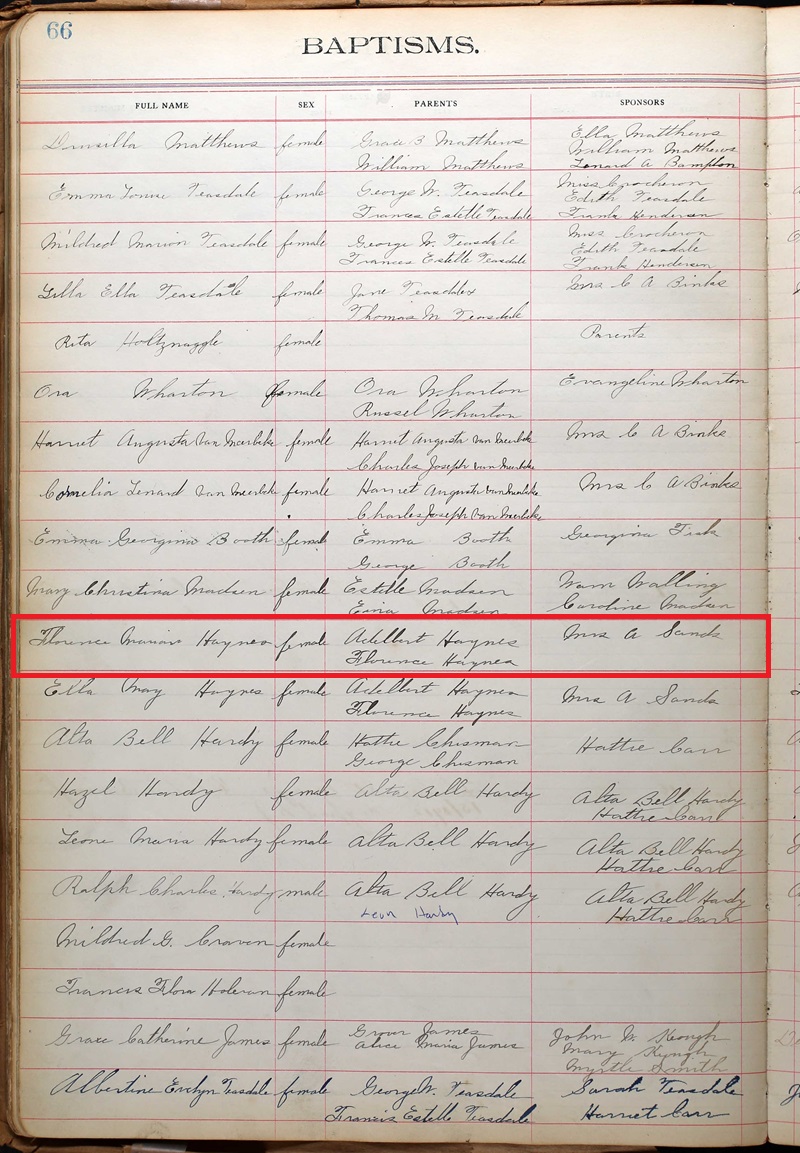 66
BAPTISMS.
FULL NAME SEX PARENTS SPONSORS
Drusilla Matthews female Grace B Matthews Ella Matthews
William Matthews William Matthews
Lenard A Bampton
Emma Louise Teasdale female George W. Teasdale Miss Crocheron
Frances Estelle Teasdale Edith Teasdale
Frank Henderson
Mildred Marion Teasdale female George W. Teasdale Miss Crocheron
Frances Estelle Teasdale Edith Teasdale
Frank Henderson
Lilla Ella Teasdale female Jane Teasdale Mrs C A Binks
Thomas M Teasdale
Rita Holtznaggle female Parents
Ora Wharton female Ora Wharton Evangeline Wharton
Russel Wharton
Harriet Augusta Van Meerbeke female Harriet Augusta Van Meerbeke Mrs C A Binks
Charles Joseph Van Meerbeke
Cornelia Lenard Van Meerbeke female Harriet Augusta Van Meerbeke Mrs C A Binks
Charles Joseph Van Meerbeke
Emma Georgina Booth female Emma Booth Georgina
George Booth
Mary Christina Madsen female Estelle Madsen Walling
Madsen Caroline Madsen
Florence Haynes female Adelbert Haynes Mrs A Sands
Florence Haynes
Etta May Haynes female Adelbert Haynes Mrs A Sands
Florence Haynes
Alta Bell Hardy female Hattie Chisman Hattie Carr
George Chisman
Hazel Hardy female Alta Bell Hardy Alta Bell Hardy
Hattie Carr
Leone Maria Hardy female Alta Bell Hardy Alta Bell Hardy
Hattie Carr
Ralph Charles Hardy male Alta Bell Hardy Alta Bell Hardy
Leon Hardy Hattie Carr
Mildred G. Craven female
Frances Flora female
Grace Catherine James female Grover James John W. Keough
Alice Maria James Mary Keough
Myrtle Smith
Albertine Evelyn Teasdale female George W. Teasdale Sarah Teasdale
Francis Estelle Teasdale Harriet Carr